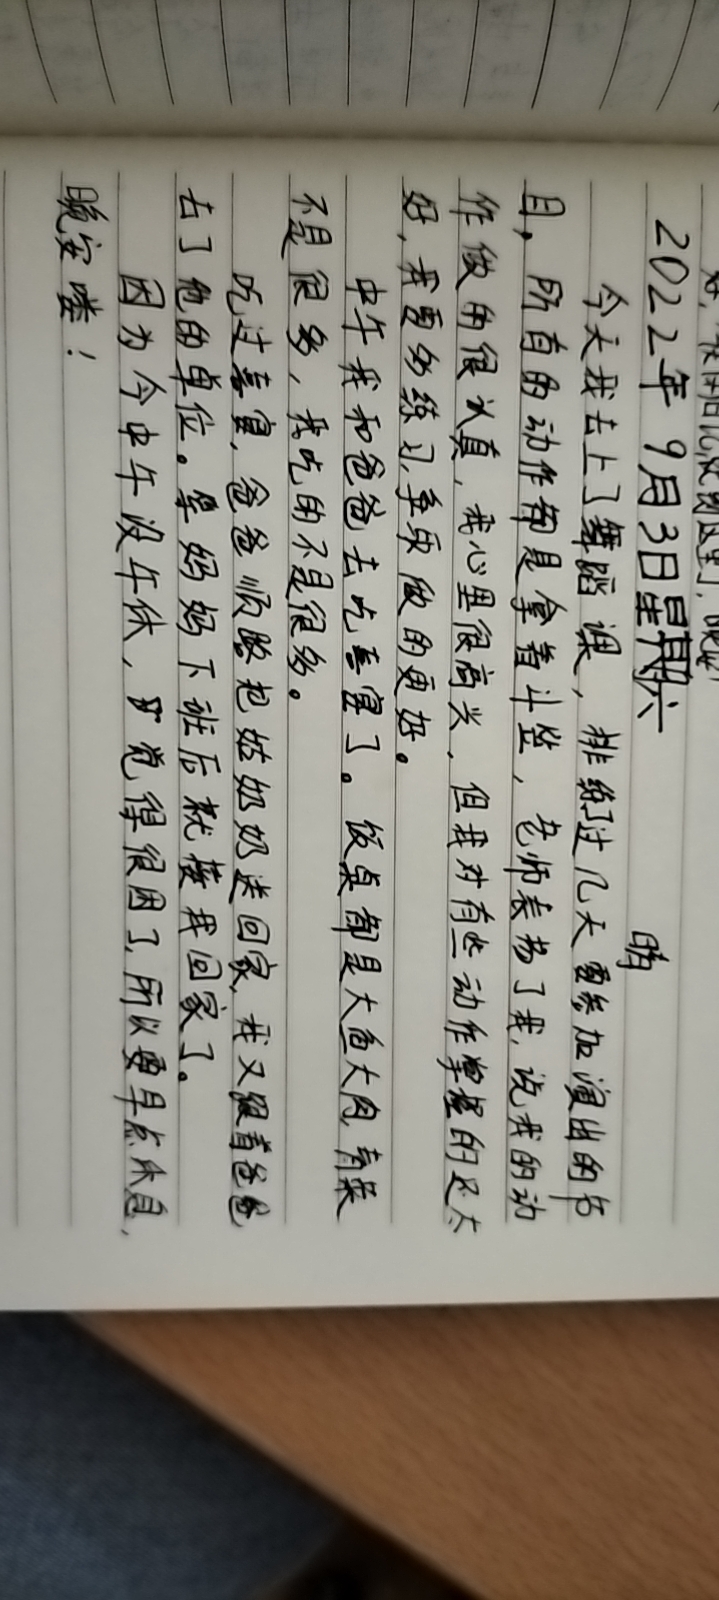 2022年9月3日星期六 晴
今天我去上了舞蹈课，排练了过几天要参加演出的节
目，所有的动作都是拿着斗笠，老师表扬了我，说我的动
作做的很认真，我心里很高兴，但我对有些动作掌握的还不
好，我要多练习，争取做的更好。
中午我和爸爸去吃喜宴了。饭桌都是大鱼大肉，青菜
不是很多，我吃的不是很多。
吃过喜宴，爸爸顺路把姑奶奶送回家，我又跟着爸爸
去了他的单位。等妈妈下班后就接我回家了。
因为今中午没午休，觉得很困了，所以要早点休息，
晚安喽！